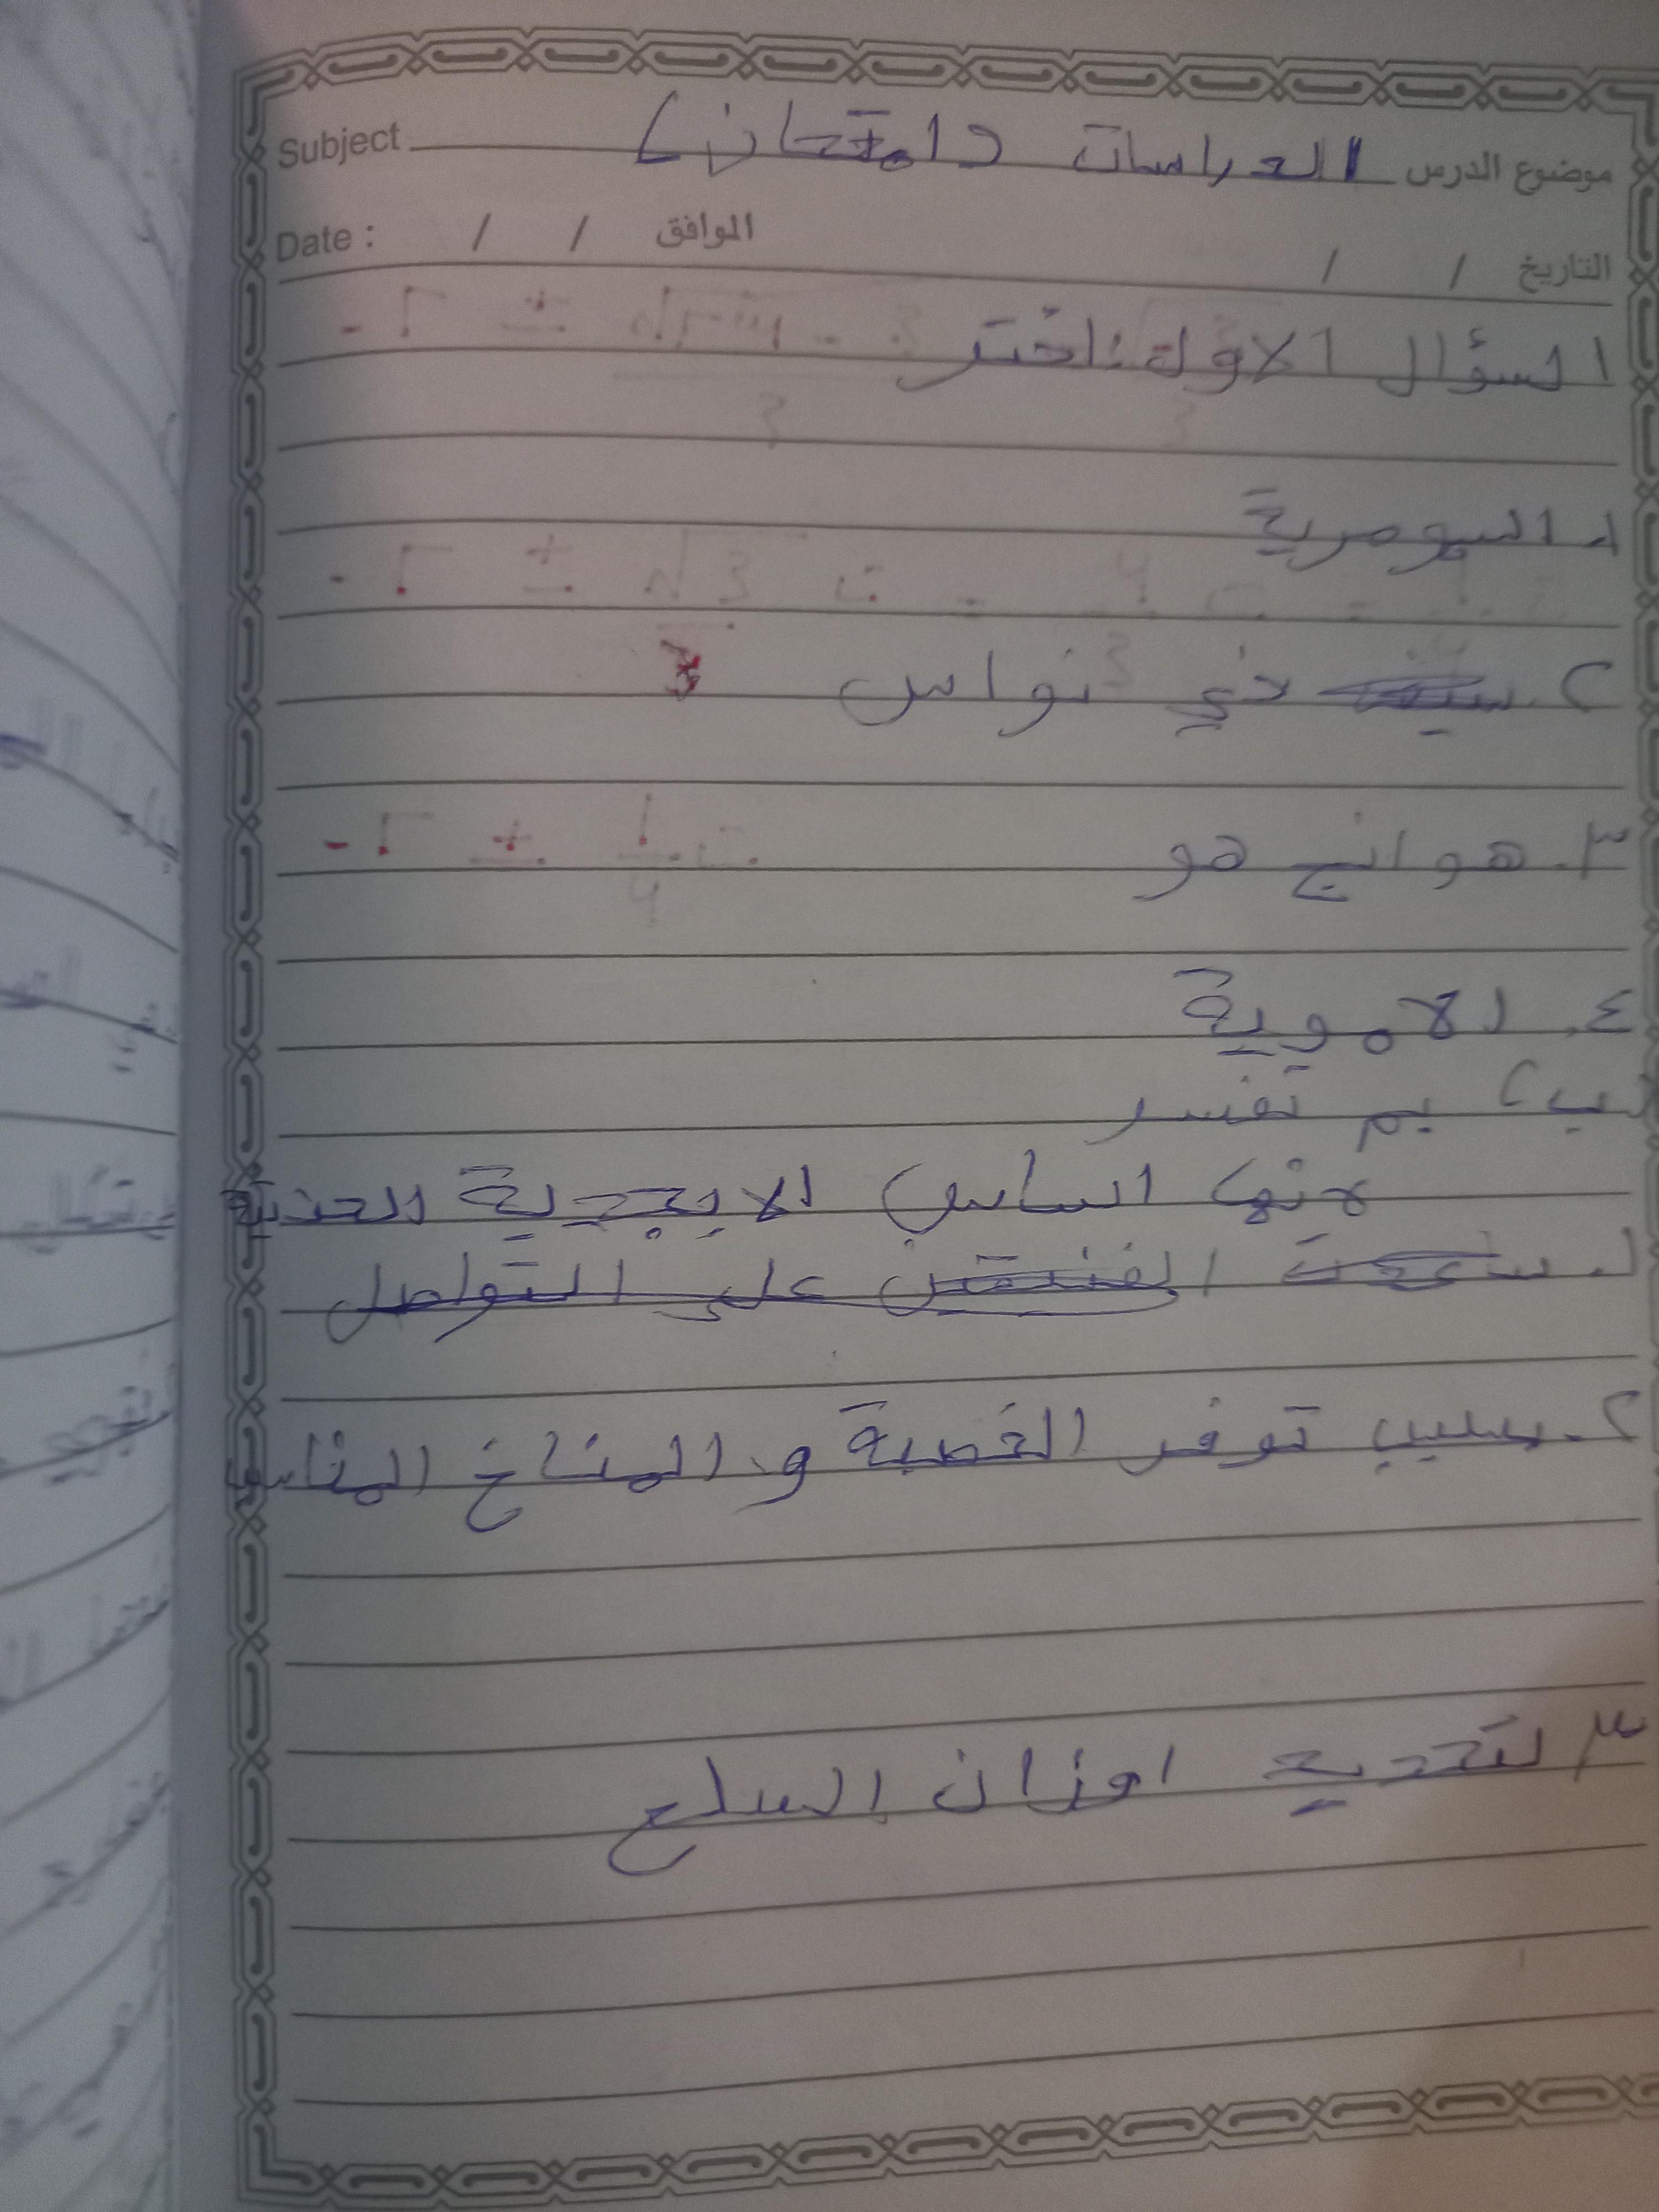 موضوع الدرس الدراسات (امتحان) Subject
التاريخ / / الموافق / / Date :
السؤال الاول: اختر
١. السومرية
٢. ذي نواس
٣. هوانج هو
٤. الاموية
ب) بم تفسر
منها اساس الابجدية الحديثة
١. ساعدت على التواصل
٢. بسبب توفر الخصبة و المناخ المناسب
٣ لتحديد اوزان السلع